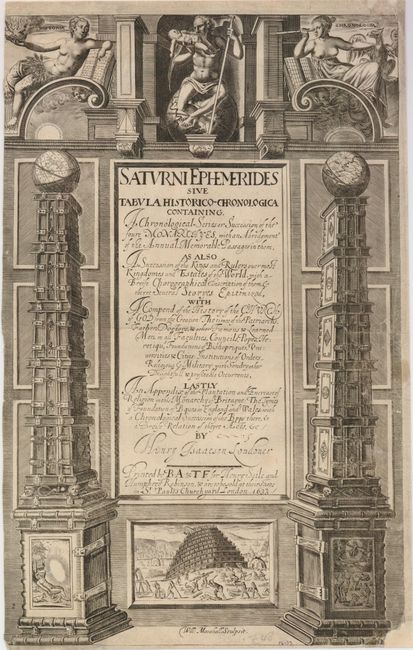 HISTORIA
CHRONOLOGIA
SATVRNI EPHEMERIDES
SIVE
TABVLA HISTORICO-CHRONOLOGICA
CONTAINING,
A Chronological Series or Succession of the
foure MONARCHYES, with an Abridgement
of the Annual Memorable Passages in them,
AS ALSO
A Succession of the Kings and Rulers over most
Kingdomes and Estates of the World, with a
Breife Chorographical of them &
their Storyes Epitomized,
WITH
A Compend of the History of the CHVRCH
of GOD from the Creation. The times of the Patriarchs,
Doctors, & other Famous & Learned
Men in all Faculties, Councils, Popes,
Foundations of Bishopriques, Vni
versities & Cities, Institutions of Orders,
Religious & Military, with sundry other
& profitable Occurrents,
LASTLY
An Appendix of the Plantation and Encrease of
Religion in the Monarchy of Britayne. The Times
of Foundation of in England and Wales with
a Chronological Succession of the Bpps there, &
a Breife Relation of theyr Acts, &c
BY
Henry Isaacson Londoner
Printed by B.A. & T.F. for Henry Seile and
Humphrey Robinson, & are to be sold at their shops
in St. Paules Churchyard London. 1633
Will: Marshall Sculpsit.